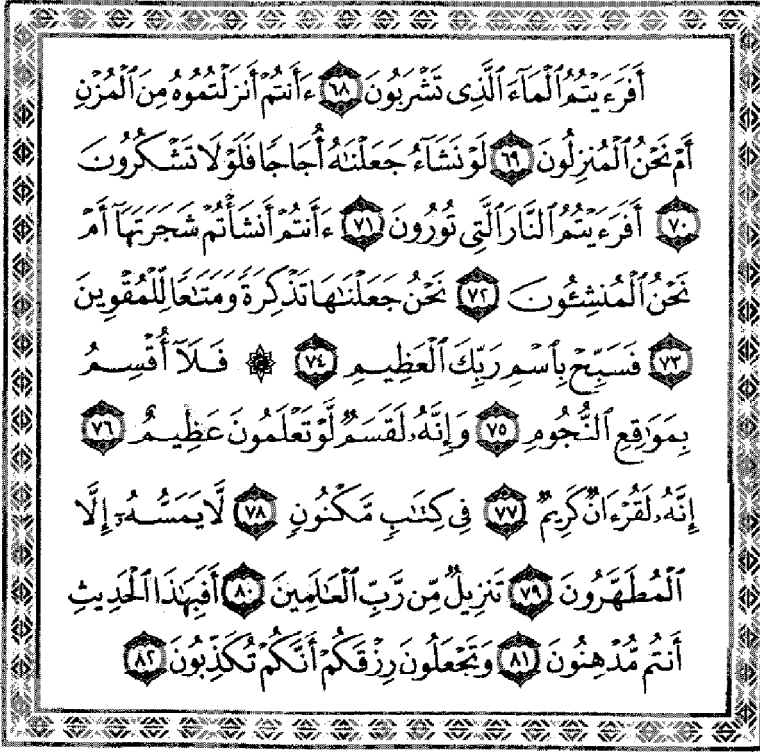 أَفَرَءَيْتُمُ ٱلْمَآءَ ٱلَّذِى تَشْرَبُونَ ٦٨ ءَأَنتُمْ أَنزَلْتُمُوهُ مِنَ ٱلْمُزْنِ
أَمْ نَحْنُ ٱلْمُنزِلُونَ ٦٩ لَوْ نَشَآءُ جَعَلْنَٰهُ أُجَاجًا فَلَوْلَا تَشْكُرُونَ
٧٠ أَفَرَءَيْتُمُ ٱلنَّارَ ٱلَّتِى تُورُونَ ٧١ ءَأَنتُمْ أَنشَأْتُمْ شَجَرَتَهَآ أَمْ
نَحْنُ ٱلْمُنشِـُٔونَ ٧٢ نَحْنُ جَعَلْنَٰهَا تَذْكِرَةً وَمَتَٰعًا لِّلْمُقْوِينَ
٧٣ فَسَبِّحْ بِٱسْمِ رَبِّكَ ٱلْعَظِيمِ ٧٤ ۞ فَلَآ أُقْسِمُ
بِمَوَٰقِعِ ٱلنُّجُومِ ٧٥ وَإِنَّهُۥ لَقَسَمٌ لَّوْ تَعْلَمُونَ عَظِيمٌ ٧٦
إِنَّهُۥ لَقُرْءَانٌ كَرِيمٌ ٧٧ فِى كِتَٰبٍ مَّكْنُونٍ ٧٨ لَّا يَمَسُّهُۥٓ إِلَّا
ٱلْمُطَهَّرُونَ ٧٩ تَنزِيلٌ مِّن رَّبِّ ٱلْعَٰلَمِينَ ٨٠ أَفَبِهَٰذَا ٱلْحَدِيثِ
أَنتُم مُّدْهِنُونَ ٨١ وَتَجْعَلُونَ رِزْقَكُمْ أَنَّكُمْ تُكَذِّبُونَ ٨٢